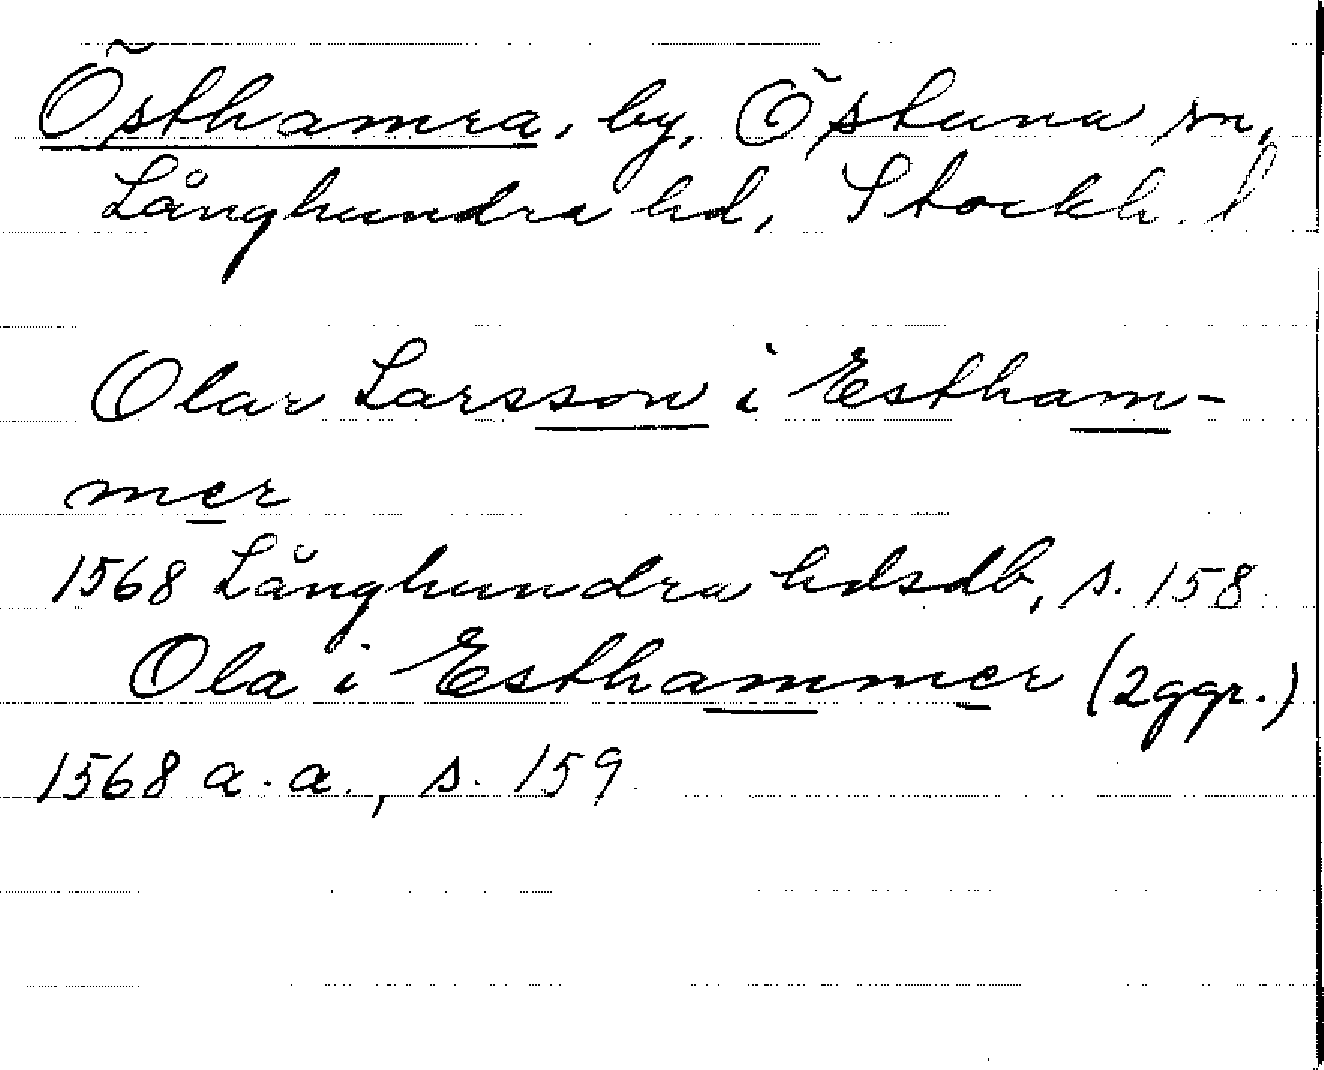 Östhamra, by, Östuna sn,
Långhundra hd, Stockh. l
Olar Larsson i Estham-
mer
1568 Långhundra hdsdb, s. 158
Ola i Esthammer (2ggr.)
1568 a. a., s. 159